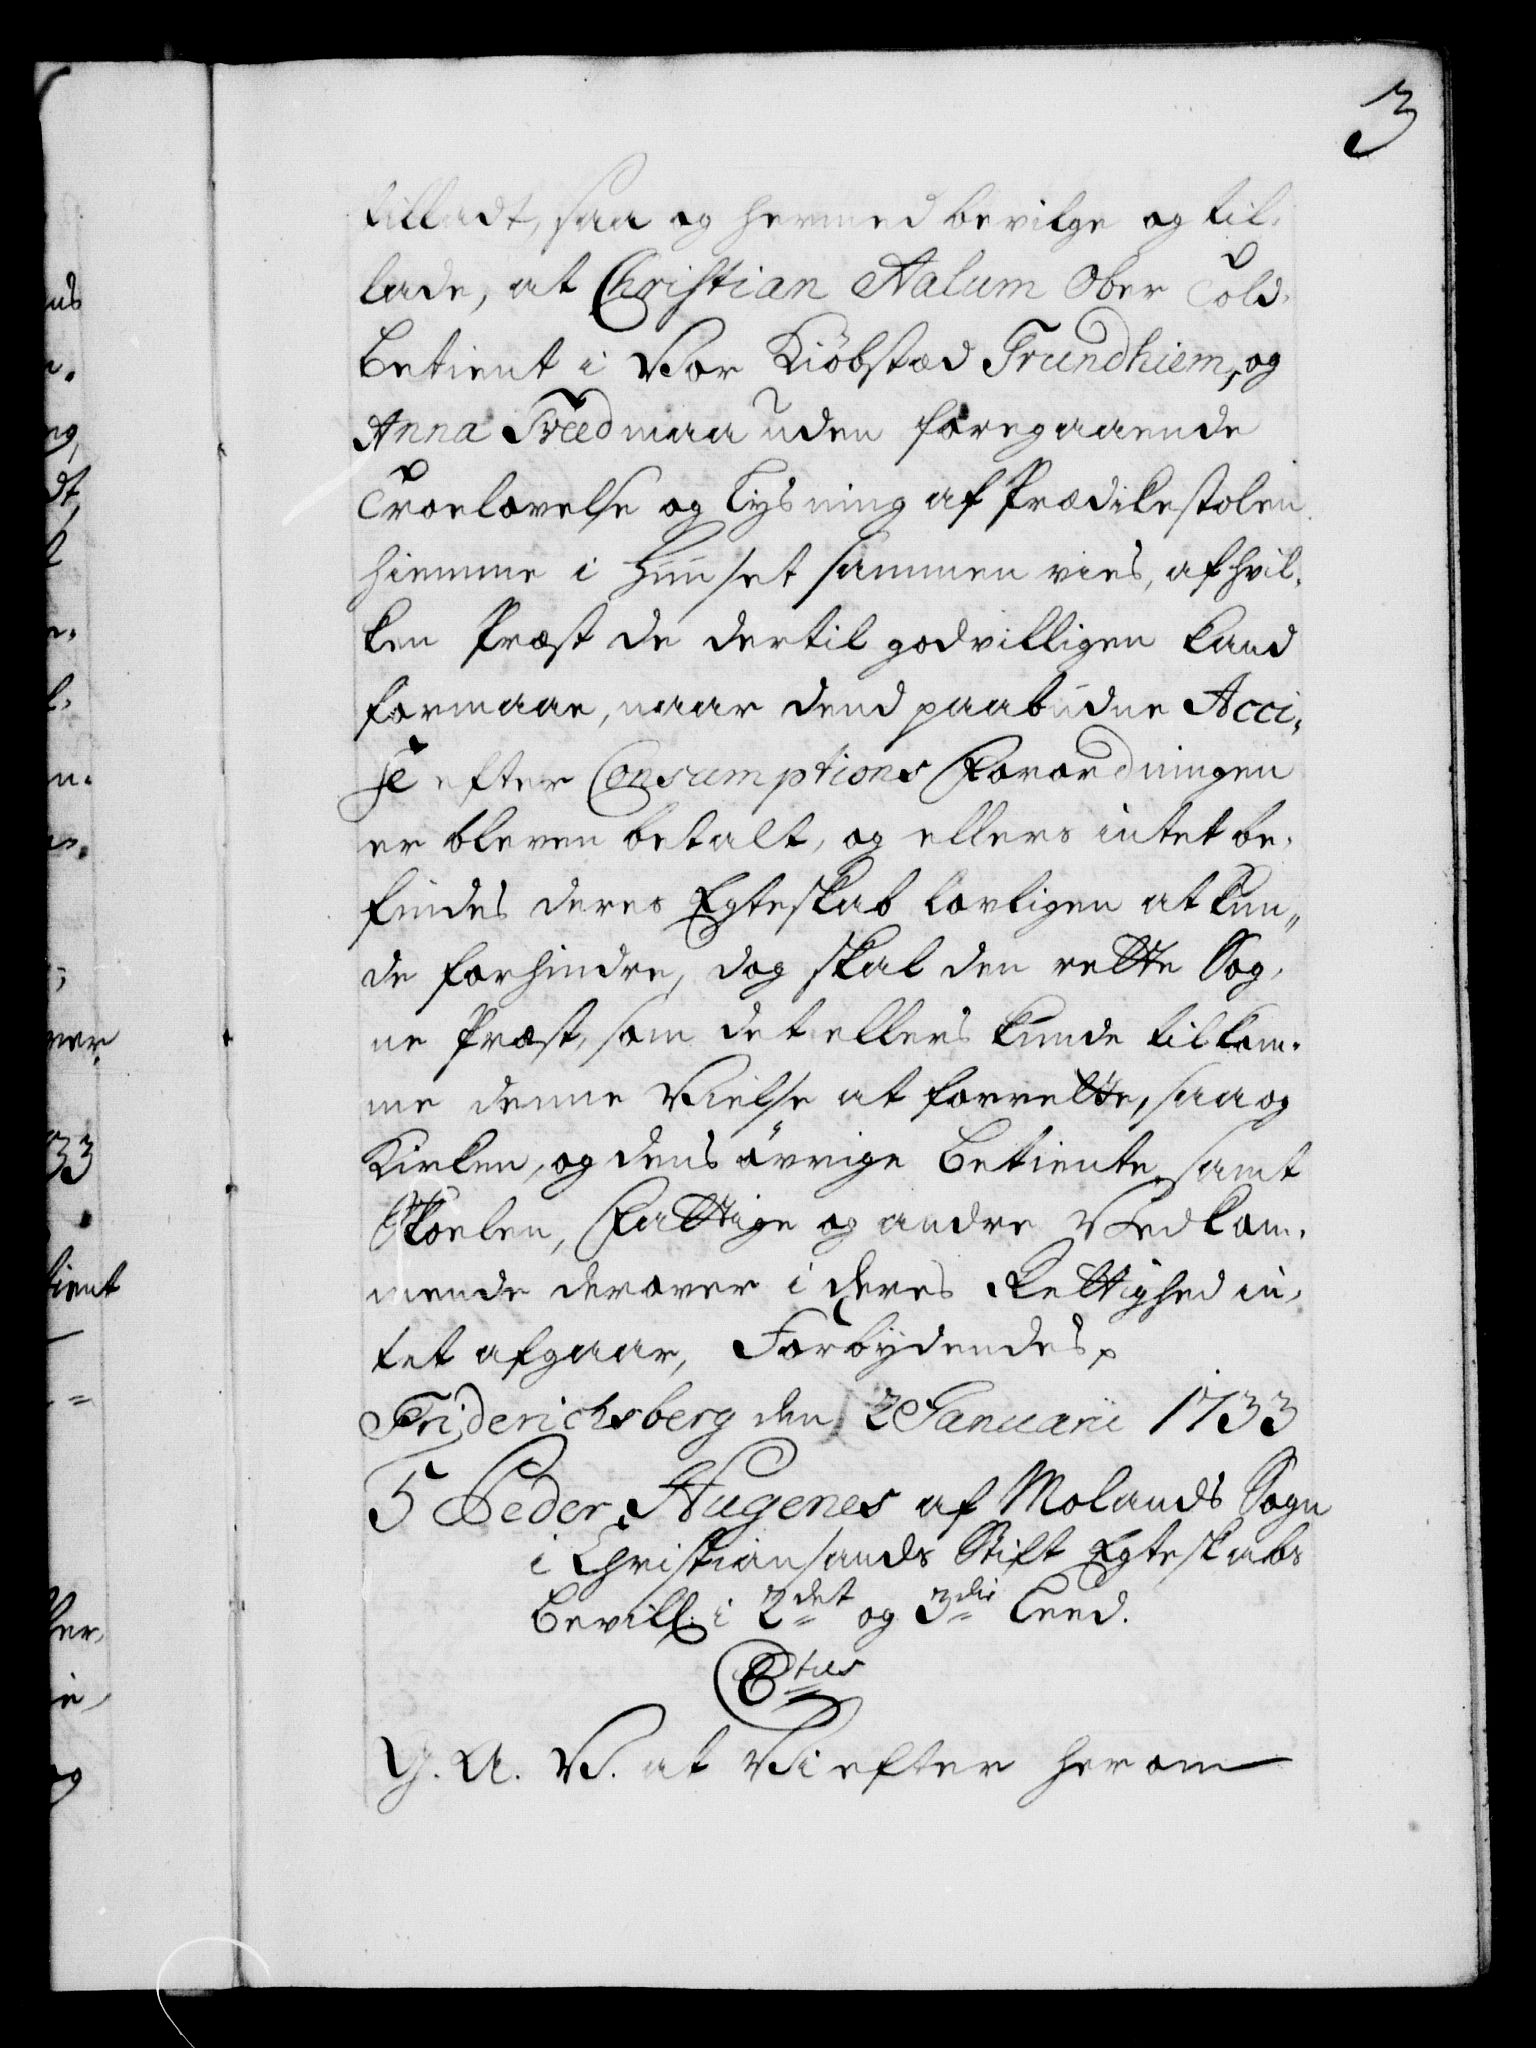 3
tilladt, saa og hermed bevilge og til-
lade, at Christian Aalum Ober Told-
betient i Vor Kiöbstæd Trundhiem, og
Anna Treed maa uden foregaaende
Troelovelse og Lysning af Prædikestolen
hiemme i Huuset sammen vies, af hvil-
ken Præst de dertil godvilligen kand
formaae, naar dend paabudne Acci-
se efter Consumptions Forordningen
er bleven betalt, og ellers intet be-
findes deres Egteskab lovligen at kun-
de forhindre, dog skal den rette Sog-
ne Præst, som det ellers kunde tilkom-
me denne Vielse at forrette, saa og
Kirken, og dens övrige Betiente, samt
Skoelen, Fattige og andre Vedkom-
mende derover i deres Rettighed in-
tet afgaar, Forbydendes
Friderichsberg den 2 Januarii 1733
5 Peder Augenes af Molands Sogn
i Christiansands Stift Egteskabs
bevill: i 2det og 3die Leed.
C6tus
G. A. V. at Vi efter herom